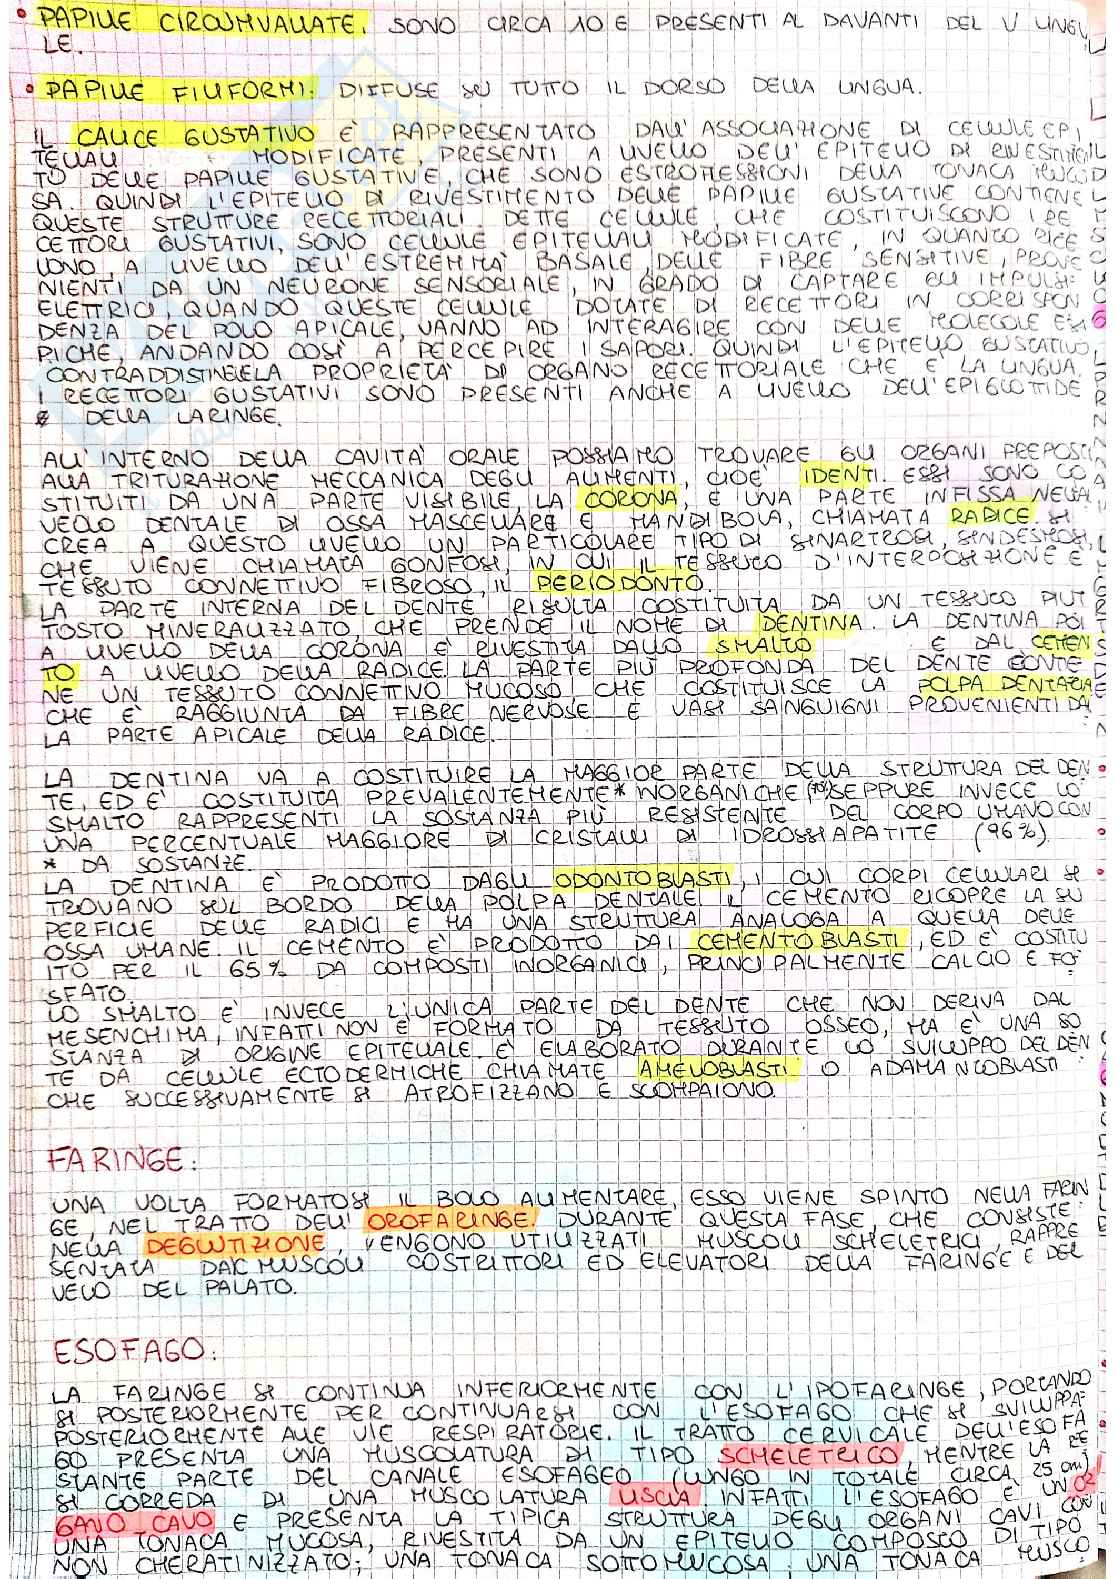 • PAPILLE CIRCUMVALLATE. SONO CIRCA 10 E PRESENTI AL DAVANTI DEL V LINGUA
LE.
• PAPILLE FILIFORMI: DIFFUSE SU TUTTO IL DORSO DELLA LINGUA.
IL CALICE GUSTATIVO È RAPPRESENTATO DALL'ASSOCIAZIONE DI CELLULE EPI
TELIALI MODIFICATE, PRESENTI A LIVELLO DELL'EPITELIO DI RIVESTIMEN
TO DELLE PAPILLE GUSTATIVE, CHE SONO ESTROFLESSIONI DELLA TONACA MUCO
SA. QUINDI L'EPITELIO DI RIVESTIMENTO DELLE PAPILLE GUSTATIVE CONTIENE
QUESTE STRUTTURE RECETTORIALI. DETTE CELLULE, CHE COSTITUISCONO I RE
CETTORI GUSTATIVI, SONO CELLULE EPITELIALI MODIFICATE, IN QUANTO RICE
VONO, A LIVELLO DELL'ESTREMITÀ BASALE, DELLE FIBRE SENSITIVE, PROVE
NIENTI DA UN NEURONE SENSORIALE, IN GRADO DI CAPTARE GLI IMPULSI
ELETTRICI, QUANDO QUESTE CELLULE DOTATE DI RECETTORI IN CORRISPON
DENZA DEL POLO APICALE, VANNO AD INTERAGIRE CON DELLE MOLECOLE
PICHE, ANDANDO COSÌ A PERCEPIRE I SAPORI. QUINDI L'EPITELIO GUSTATIVO
CONTRADDISTINGUE LA PROPRIETÀ DI ORGANO RECETTORIALE CHE È LA LINGUA.
I RECETTORI GUSTATIVI SONO PRESENTI ANCHE A LIVELLO DELL'EPIGLOTTIDE
E DELLA LARINGE.
ALL'INTERNO DELLA CAVITÀ ORALE POSSIAMO TROVARE GLI ORGANI PREPOSTI
ALLA TRITURAZIONE MECCANICA DEGLI ALIMENTI, CIOÈ I DENTI. ESSI SONO CO
STITUITI DA UNA PARTE VISIBILE, LA CORONA, E UNA PARTE INFISSA NELL'AL
VEOLO DENTALE DI OSSA MASCELLARE E MANDIBOLA, CHIAMATA RADICE. SI
CREA A QUESTO LIVELLO UN PARTICOLARE TIPO DI SINARTROSI, SINDESMOSI,
CHE VIENE CHIAMATA GONFOSI, IN CUI IL TESSUTO D'INTERPOSIZIONE È
TESSUTO CONNETTIVO FIBROSO, IL PERIODONTO.
LA PARTE INTERNA DEL DENTE RISULTA COSTITUITA DA UN TESSUTO PIUT
TOSTO MINERALIZZATO, CHE PRENDE IL NOME DI DENTINA. LA DENTINA POI
A LIVELLO DELLA CORONA È RIVESTITA DALLO SMALTO E DAL CEMEN
TO A LIVELLO DELLA RADICE. LA PARTE PIÙ PROFONDA DEL DENTE CONTE
NE UN TESSUTO CONNETTIVO MUCOSO, CHE COSTITUISCE LA POLPA DENTARIA
CHE È RAGGIUNTA DA FIBRE NERVOSE E VASI SANGUIGNI PROVENIENTI DAL
LA PARTE APICALE DELLA RADICE.
LA DENTINA VA A COSTITUIRE LA MAGGIOR PARTE DELLA STRUTTURA DEL DEN
TE, ED È COSTITUITA PREVALENTEMENTE* INORGANICHE (70%) SEPPURE INVECE LO
SMALTO RAPPRESENTI LA SOSTANZA PIÙ RESISTENTE DEL CORPO UMANO CON
UNA PERCENTUALE MAGGIORE DI CRISTALLI DI IDROSSIAPATITE (96%).
* DA SOSTANZE.
LA DENTINA È PRODOTTO DAGLI ODONTOBLASTI, I CUI CORPI CELLULARI SI
TROVANO SUL BORDO DELLA POLPA DENTALE. IL CEMENTO RICOPRE LA SU
PERFICIE DELLE RADICI E HA UNA STRUTTURA ANALOGA A QUELLA DELLE
OSSA UMANE. IL CEMENTO È PRODOTTO DAI CEMENTOBLASTI, ED È COSTITU
ITO PER IL 65% DA COMPOSTI INORGANICI, PRINCIPALMENTE CALCIO E FO
SFATO.
LO SMALTO È INVECE L'UNICA PARTE DEL DENTE CHE NON DERIVA DAL
MESENCHIMA, INFATTI NON È FORMATO DA TESSUTO OSSEO, MA È UNA SO
STANZA DI ORIGINE EPITELIALE. È ELABORATO DURANTE LO SVILUPPO DEL DEN
TE DA CELLULE ECTODERMICHE CHIAMATE AMELOBLASTI O ADAMANTOBLASTI
CHE SUCCESSIVAMENTE SI ATROFIZZANO E SCOMPAIONO.
FARINGE:
UNA VOLTA FORMATOSI IL BOLO ALIMENTARE, ESSO VIENE SPINTO NELLA FARIN
GE, NEL TRATTO DELL'OROFARINGE. DURANTE QUESTA FASE, CHE CONSISTE
NELLA DEGLUTIZIONE, VENGONO UTILIZZATI MUSCOLI SCHELETRICI, RAPPRE
SENTATA DAI MUSCOLI COSTRITTORI ED ELEVATORI DELLA FARINGE E DEL
VELO DEL PALATO.
ESOFAGO:
LA FARINGE SI CONTINUA INFERIORMENTE CON L'IPOFARINGE, PORTANDO
SI POSTERIORMENTE PER CONTINUARSI CON L'ESOFAGO CHE SI SVILUPPA
POSTERIORMENTE ALLE VIE RESPIRATORIE. IL TRATTO CERVICALE DELL'ESOFA
GO PRESENTA UNA MUSCOLATURA DI TIPO SCHELETRICO, MENTRE LA RE
STANTE PARTE DEL CANALE ESOFAGEO (LUNGO IN TOTALE CIRCA 25 cm)
SI CORREDA DI UNA MUSCOLATURA LISCIA INFATTI L'ESOFAGO È UN OR
GANO CAVO E PRESENTA LA TIPICA STRUTTURA DEGLI ORGANI CAVI CON
UNA TONACA MUCOSA, RIVESTITA DA UN EPITELIO COMPOSTO DI TIPO
NON CHERATINIZZATO; UNA TONACA SOTTOMUCOSA; UNA TONACA MUSCO